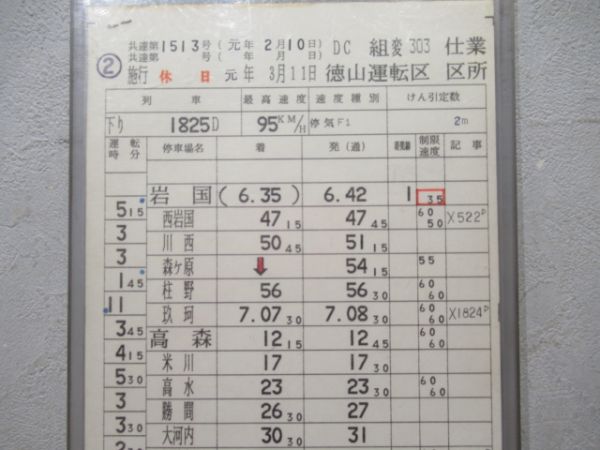 共達第1513号 (元年 2月10日) DC 組変 303 仕業
共達第 号 ( 年 月 日)
② 施行 休日 元年 3月11日 徳山運転区 区所
列 車 最高速度 速度種別 けん引定数
下り 1825D 95KM/H 停気F1 2m
運転時分 停車場名 着 発(通) 着発線 制限速度 記事
岩国 (6.35) 6.42 1 35
5 15
西岩国 47 15 47 45 60 50 X522D
3
川西 50 45 51 15
3
森ヶ原 ↓ 54 15 55
1 45
柱野 56 56 30 60 60
11
玖珂 7.07 30 7.08 30 60 60 X1824D
3 45
高森 12 15 12 45 60
4 15
米川 17 17 30
5 30
高水 23 23 30 60 60
3
勝間 26 30 27
3 30
大河内 30 30 31